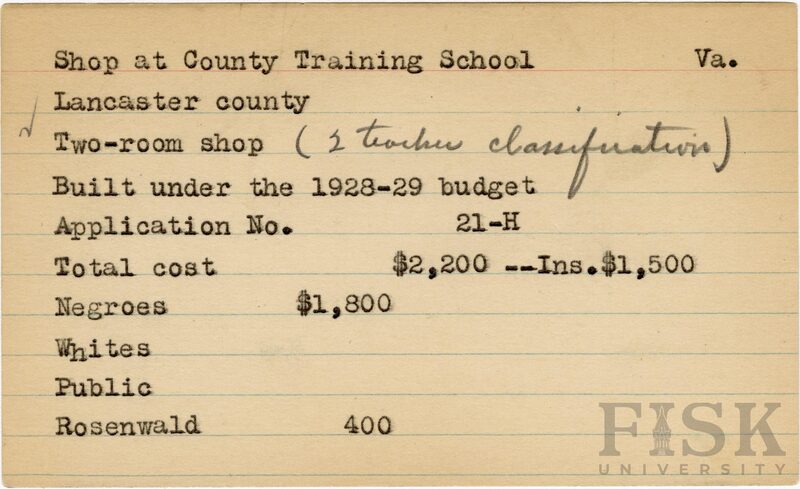 Shop at County Training School Va.
Lancaster county
Two-room shop (2 teacher classification)
Built under the 1928-29 budget
Application No. 21-H
Total cost $2,200 --Ins.$1,500
Negroes $1,800
Whites
Public
Rosenwald 400
FISK
UNIVERSITY